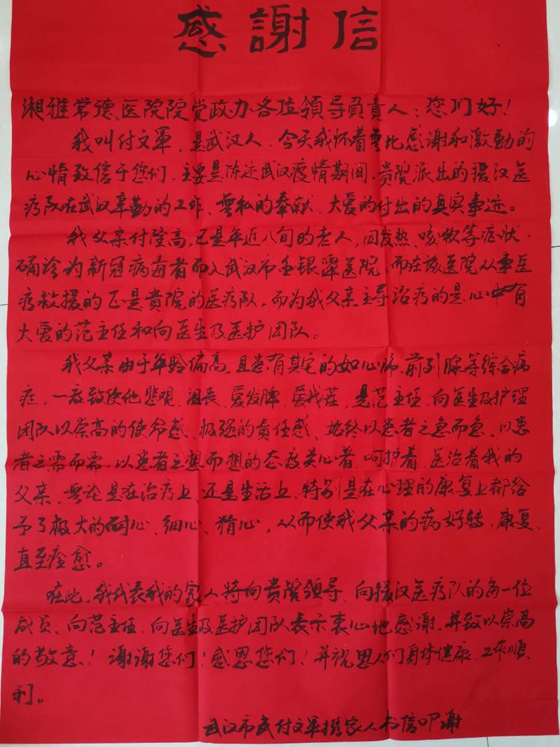 感謝信
湘雅常德医院院党政办各位领导负责人：您们好！
我叫付文軍，是武汉人，今天我怀着無比感谢和激動的
心情致信于您们，主要是陈述武汉疫情期间，贵院派出的援汉医
疗队在武汉辛勤的工作、無私的奉献、大爱的付出的真实事迹。
我父亲付陞高，已是年近八旬的老人，因发热、咳嗽等症状
确诊为新冠病毒者而入武汉市金银潭医院，而在该医院从事医
疗救援的正是貴院的医疗队，而为我父亲主导治疗的是心中有
大爱的范主任和向医生及医护团队。
我父亲由于年龄偏高，且患有其它的如心脏、前列腺等综合病
症，一度致使他悲观、沮丧、爱发脾，是范主任、向医生及护理
团队以崇高的使命感、极强的责任感、始终以患者之急而急，以患
者之需而需，以患者之想而想的态度关心着、呵护着、医治着我的
父亲，無论是在治疗上，还是生活上，特别是在心理的康复上都给
予了极大的耐心、细心、精心，从而使我父亲的病好转、康复
直至痊愈。
在此，我代表我的家人特向贵院领导、向援汉医疗队的每一位
成员、向范主任、向医生及医护团队表示衷心地感谢，并致以崇高
的敬意！谢谢您们！感恩您们！并祝恩人们身体健康、工作順
利。
武汉市民付文軍携家人书信叩谢